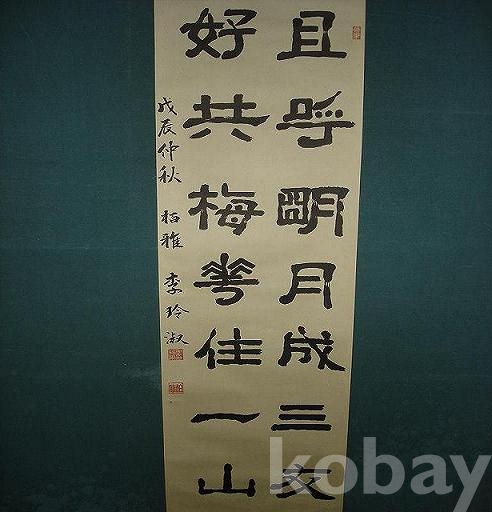 且呼明月成三友
好共梅花住一山
戊辰仲秋 栢雅 李玲淑
kobay